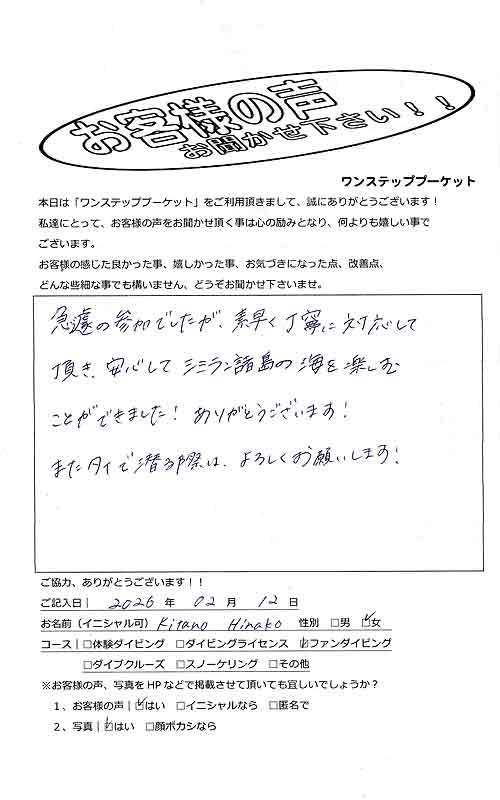 お客様の声
お聞かせ下さい！！
ワンステッププーケット
本日は「ワンステッププーケット」をご利用頂きまして、誠にありがとうございます！
私達にとって、お客様の声をお聞かせ頂く事は心の励みとなり、何よりも嬉しい事で
ございます。
お客様の感じた良かった事、嬉しかった事、お気づきになった点、改善点、
どんな些細な事でも構いません、どうぞお聞かせ下さいませ。
急遽の参加でしたが、素早く丁寧に対応して
頂き、安心して シミラン諸島の海を楽しむ
ことができました！ ありがとうございます！
またタイで潜る際は、よろしくお願いします！
ご協力、ありがとうございます！！
ご記入日| 2026 年 02 月 12 日
お名前（イニシャル可）Kitano Hinako 性別 □男 ☑女
コース|□体験ダイビング □ダイビングライセンス ☑ファンダイビング
□ダイブクルーズ □スノーケリング □その他
※お客様の声、写真をHPなどで掲載させて頂いても宜しいでしょうか？
1、お客様の声|☑はい □イニシャルなら □匿名で
2、写真|☑はい □顔ボカシなら